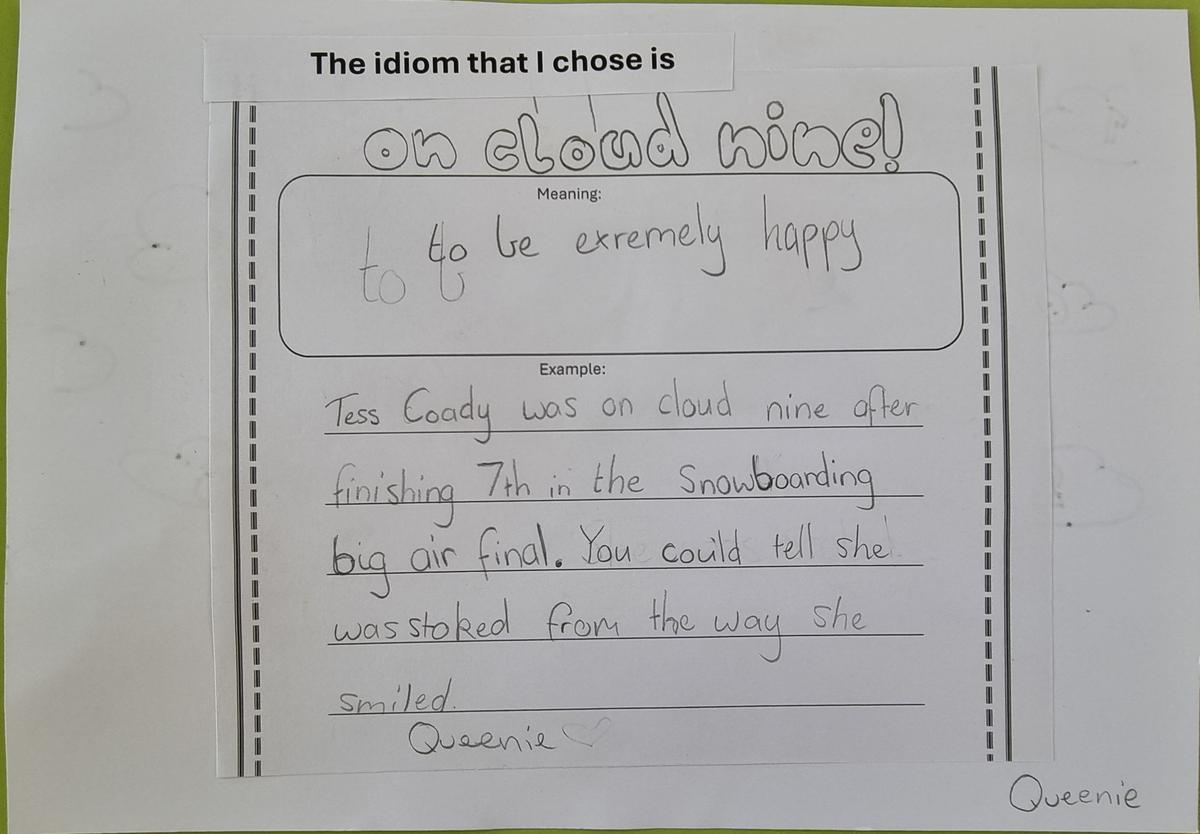 The idiom that I chose is
on cloud nine!
Meaning:
to to be exremely happy
Example:
Tess Coady was on cloud nine after
finishing 7th in the Snowboarding
big air final. You could tell she
was stoked from the way she
smiled.
Queenie
Queenie